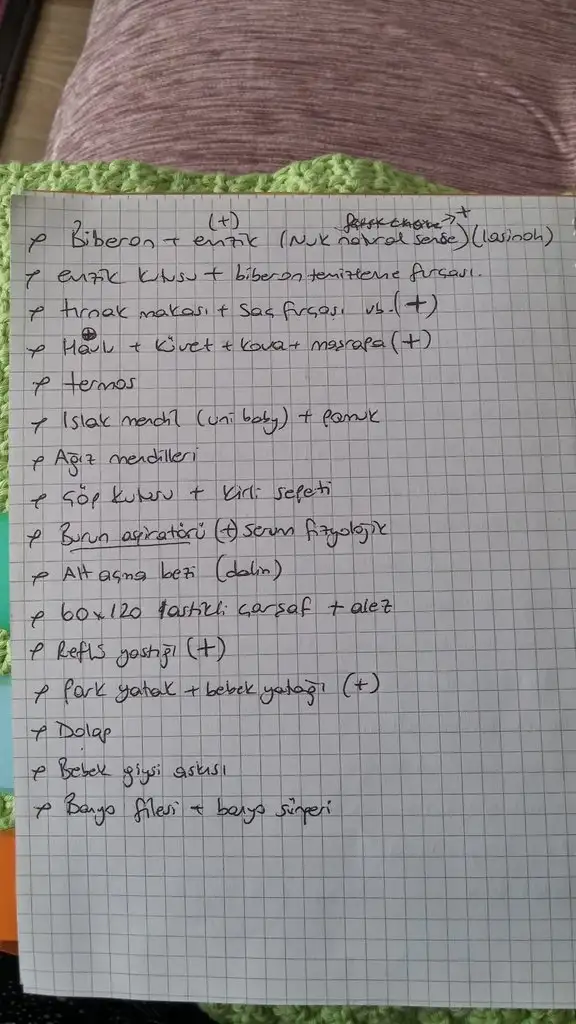 (+) +
Biberon + emzik (Nuk natural sense) (lasinoh)
emzik kutusu + biberon temizleme fırçası.
tırnak makası + saç fırçası vb. (+)
Havlu + küvet + kova + maşrapa (+)
termos
Islak mendil (uni baby) + pamuk
Ağız mendilleri
Çöp kutusu + kirli sepeti
Burun aspiratörü (+) serum fizyolojik
Alt açma bezi (dalin)
60x120 lastikli çarşaf + alez
Reflü yastığı (+)
Park yatak + bebek yatağı (+)
Dolap
Bebek giysi askısı
Banyo filesi + banyo süngeri